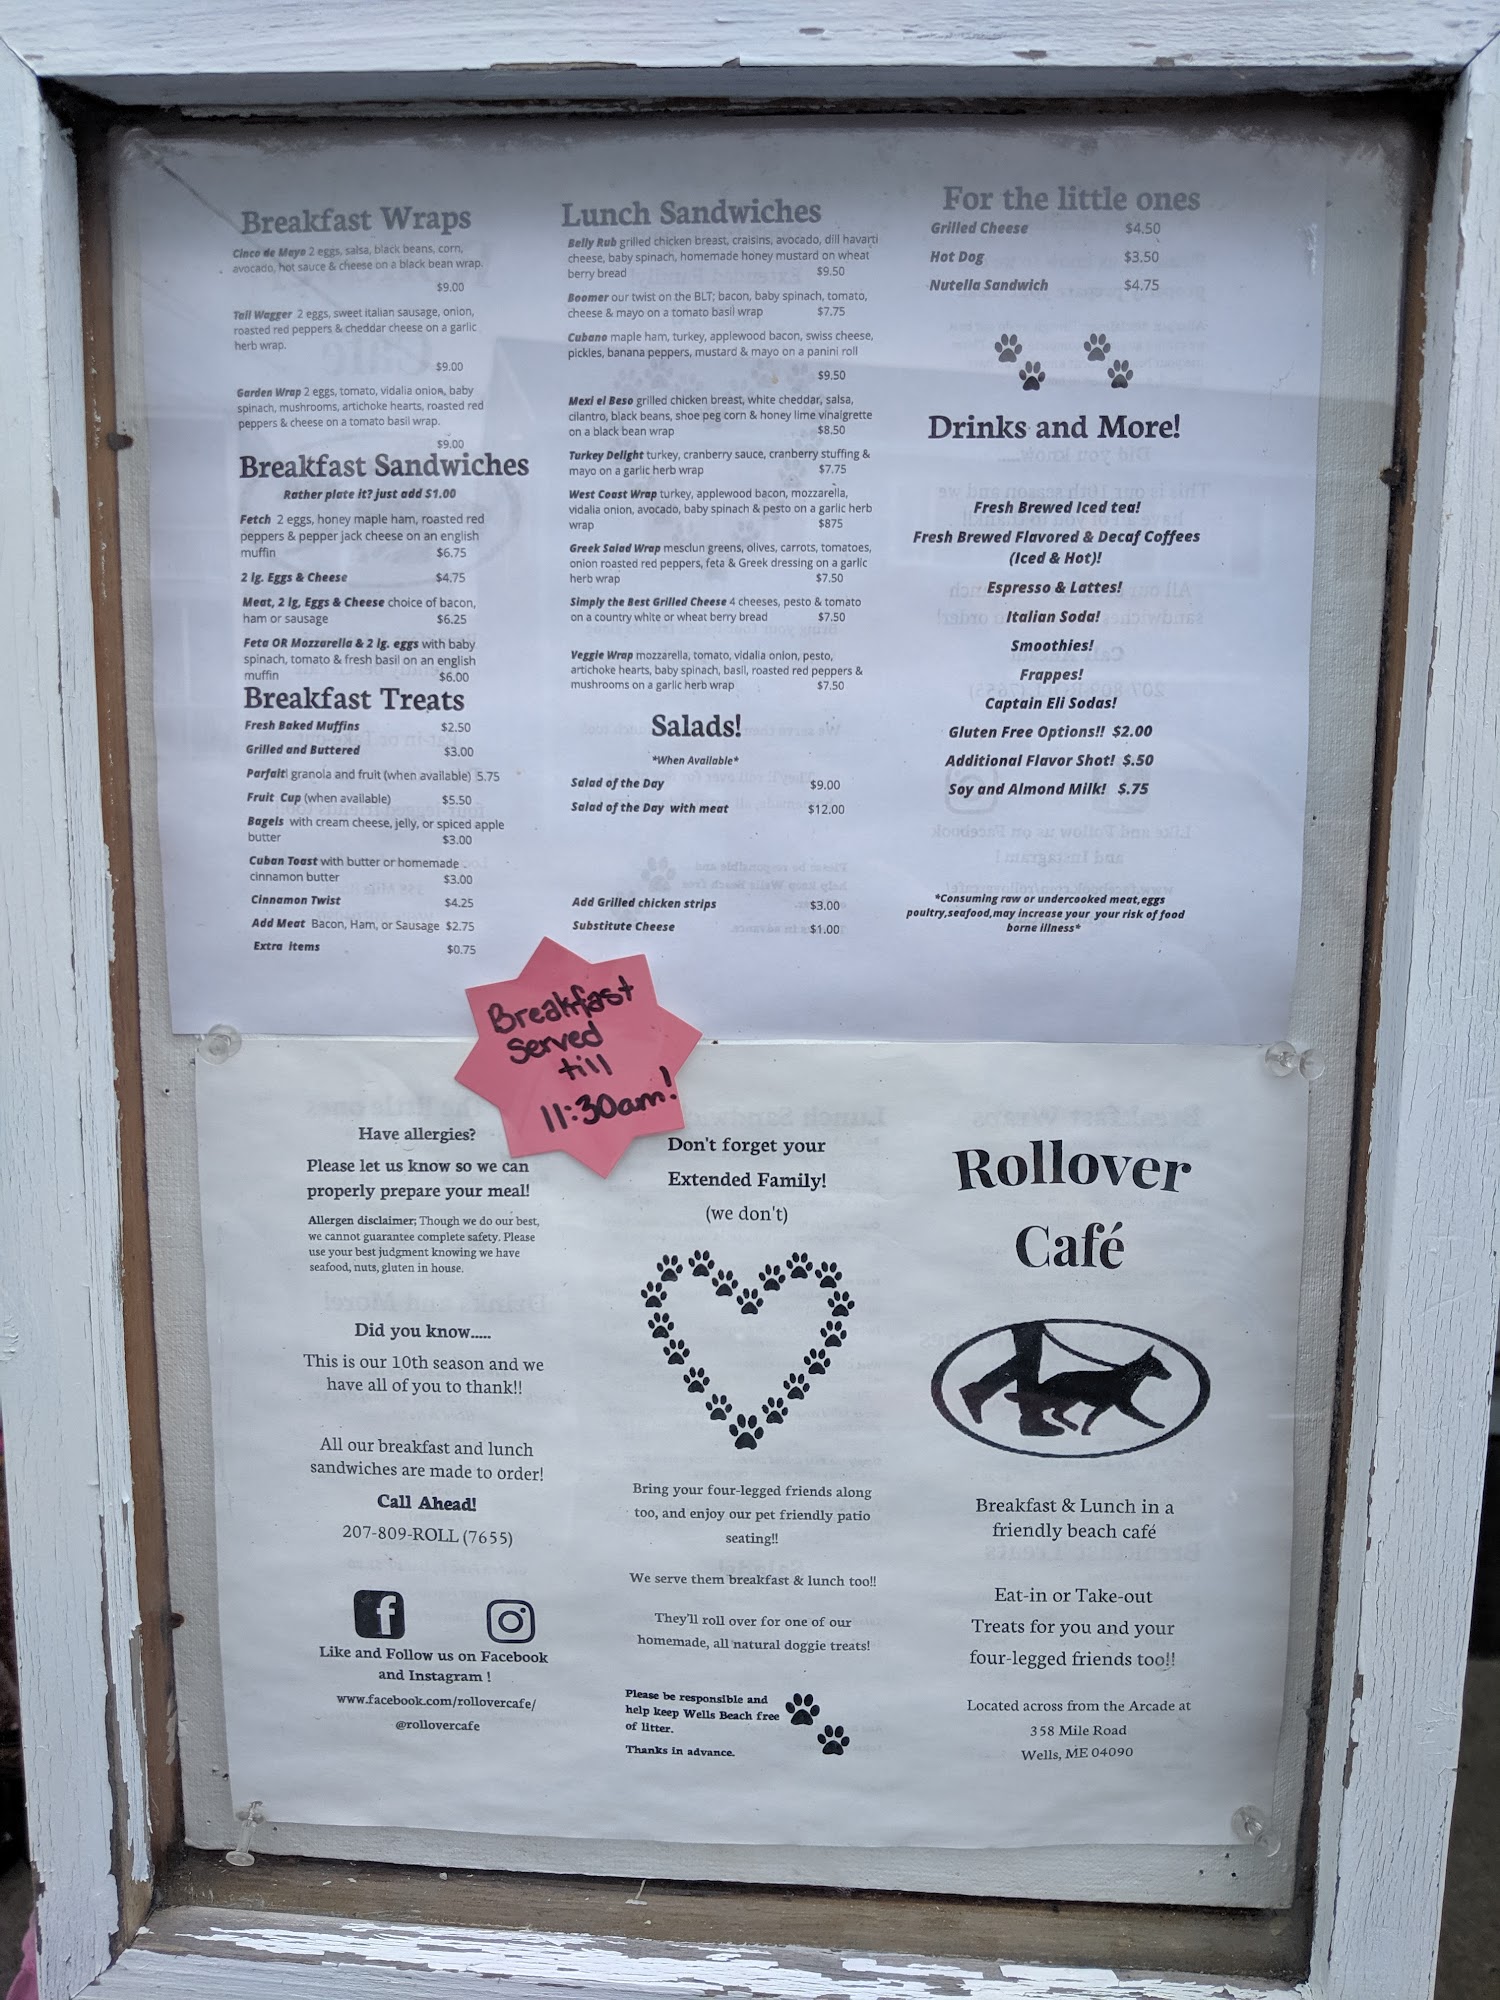 Breakfast Wraps
Cinco de Mayo 2 eggs, salsa, black beans, corn,
avocado, hot sauce & cheese on a black bean wrap.
$9.00
Tail Wagger 2 eggs, sweet italian sausage, onion,
roasted red peppers & cheddar cheese on a garlic
herb wrap.
$9.00
Garden Wrap 2 eggs, tomato, vidalia onion, baby
spinach, mushrooms, artichoke hearts, roasted red
peppers & cheese on a tomato basil wrap.
$9.00
Breakfast Sandwiches
Rather plate it? just add $1.00
Fetch 2 eggs, honey maple ham, roasted red
peppers & pepper jack cheese on an english
muffin $6.75
2 lg. Eggs & Cheese $4.75
Meat, 2 lg, Eggs & Cheese choice of bacon,
ham or sausage $6.25
Feta OR Mozzarella & 2 lg. eggs with baby
spinach, tomato & fresh basil on an english
muffin $6.00
Breakfast Treats
Fresh Baked Muffins $2.50
Grilled and Buttered $3.00
Parfait granola and fruit (when available) 5.75
Fruit Cup (when available) $5.50
Bagels with cream cheese, jelly, or spiced apple
butter $3.00
Cuban Toast with butter or homemade
cinnamon butter $3.00
Cinnamon Twist $4.25
Add Meat Bacon, Ham, or Sausage $2.75
Extra items $0.75
Lunch Sandwiches
Belly Rub grilled chicken breast, craisins, avocado, dill havarti
cheese, baby spinach, homemade honey mustard on wheat
berry bread $9.50
Boomer our twist on the BLT; bacon, baby spinach, tomato,
cheese & mayo on a tomato basil wrap $7.75
Cubano maple ham, turkey, applewood bacon, swiss cheese,
pickles, banana peppers, mustard & mayo on a panini roll
$9.50
Mexi el Beso grilled chicken breast, white cheddar, salsa,
cilantro, black beans, shoe peg corn & honey lime vinaigrette
on a black bean wrap $8.50
Turkey Delight turkey, cranberry sauce, cranberry stuffing &
mayo on a garlic herb wrap $7.75
West Coast Wrap turkey, applewood bacon, mozzarella,
vidalia onion, avocado, baby spinach & pesto on a garlic herb
wrap $875
Greek Salad Wrap mesclun greens, olives, carrots, tomatoes,
onion roasted red peppers, feta & Greek dressing on a garlic
herb wrap $7.50
Simply the Best Grilled Cheese 4 cheeses, pesto & tomato
on a country white or wheat berry bread $7.50
Veggie Wrap mozzarella, tomato, vidalia onion, pesto,
artichoke hearts, baby spinach, basil, roasted red peppers &
mushrooms on a garlic herb wrap $7.50
Salads!
*When Available*
Salad of the Day $9.00
Salad of the Day with meat $12.00
Add Grilled chicken strips $3.00
Substitute Cheese $1.00
For the little ones
Grilled Cheese $4.50
Hot Dog $3.50
Nutella Sandwich $4.75
Drinks and More!
Fresh Brewed Iced tea!
Fresh Brewed Flavored & Decaf Coffees
(Iced & Hot)!
Espresso & Lattes!
Italian Soda!
Smoothies!
Frappes!
Captain Eli Sodas!
Gluten Free Options!! $2.00
Additional Flavor Shot! $.50
Soy and Almond Milk! $.75
*Consuming raw or undercooked meat,eggs
poultry,seafood,may increase your your risk of food
borne illness*
Breakfast
served
till
11:30am!
Have allergies?
Please let us know so we can
properly prepare your meal!
Allergen disclaimer; Though we do our best,
we cannot guarantee complete safety. Please
use your best judgment knowing we have
seafood, nuts, gluten in house.
Did you know.....
This is our 10th season and we
have all of you to thank!!
All our breakfast and lunch
sandwiches are made to order!
Call Ahead!
207-809-ROLL (7655)
Like and Follow us on Facebook
and Instagram !
www.facebook.com/rollovercafe/
@rollovercafe
Don't forget your
Extended Family!
(we don't)
Bring your four-legged friends along
too, and enjoy our pet friendly patio
seating!!
We serve them breakfast & lunch too!!
They'll roll over for one of our
homemade, all natural doggie treats!
Please be responsible and
help keep Wells Beach free
of litter.
Thanks in advance.
Rollover
Café
Breakfast & Lunch in a
friendly beach café
Eat-in or Take-out
Treats for you and your
four-legged friends too!!
Located across from the Arcade at
358 Mile Road
Wells, ME 04090